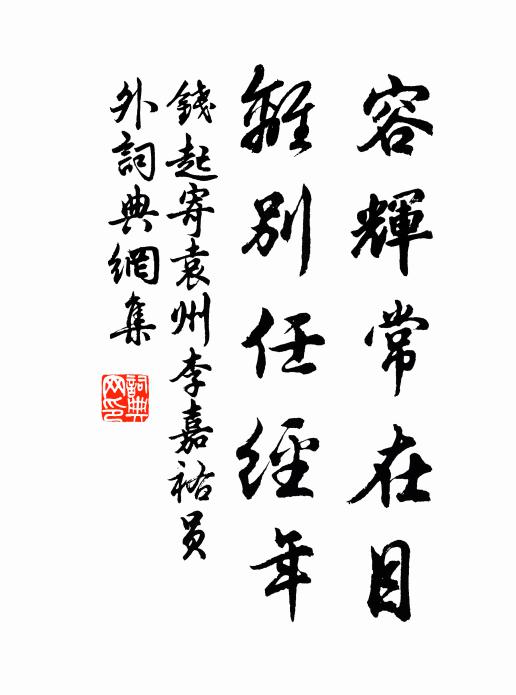 容輝常在目
離別任經年
錢起寄袁州李嘉祐員
外詞典網集
詞典
网印